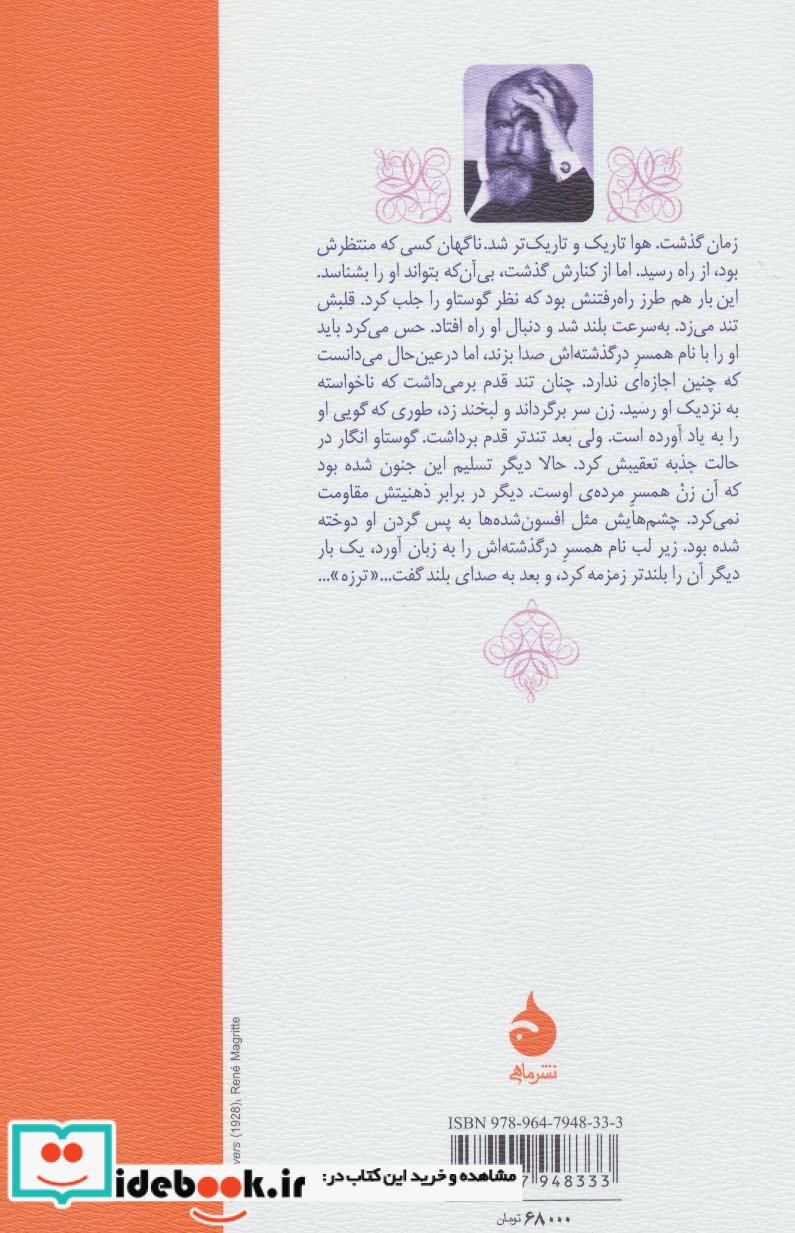 زمان گذشت. هوا تاریک و تاریک‌تر شد. ناگهان کسی که منتظرش
بود، از راه رسید. اما از کنارش گذشت، بی‌آن‌که بتواند او را بشناسد.
این بار هم طرز راه‌رفتنش بود که نظر گوستاو را جلب کرد. قلبش
تند می‌زد. به‌سرعت بلند شد و دنبال او راه افتاد. حس می‌کرد باید
او را با نام همسرِ درگذشته‌اش صدا بزند، اما درعین‌حال می‌دانست
که چنین اجازه‌ای ندارد. چنان تند قدم برمی‌داشت که ناخواسته
به نزدیک او رسید. زن سر برگرداند و لبخند زد، طوری که گویی او
را به یاد آورده است. ولی بعد تندتر قدم برداشت. گوستاو انگار در
حالت جذبه تعقیبش کرد. حالا دیگر تسلیم این جنون شده بود
که آن زنْ همسرِ مرده‌ی اوست. دیگر در برابر ذهنیتش مقاومت
نمی‌کرد. چشم‌هایش مثل افسون‌شده‌ها به پس گردن او دوخته
شده بود. زیر لب نام همسرِ درگذشته‌اش را به زبان آورد، یک بار
دیگر آن را بلندتر زمزمه کرد، و بعد به صدای بلند گفت...«ترزه»...
نشرماهی
vers (1928), René Magritte
ISBN 978-964-7948-33-3
7 948333
idebook.ir مشاهده و خرید این کتاب در:
۶۸۰۰۰ تومان